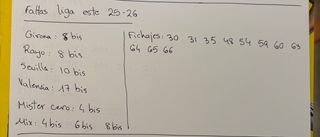 Faltas liga este 25-26
Girona: 8 bis
Rayo: 8 bis
Sevilla: 10 bis
Valencia: 17 bis
Mister caro: 4 bis
Mix: 4 bis 6 bis 8 bis
Fichajes: 30 31 35 48 54 59 60 63
64 65 66